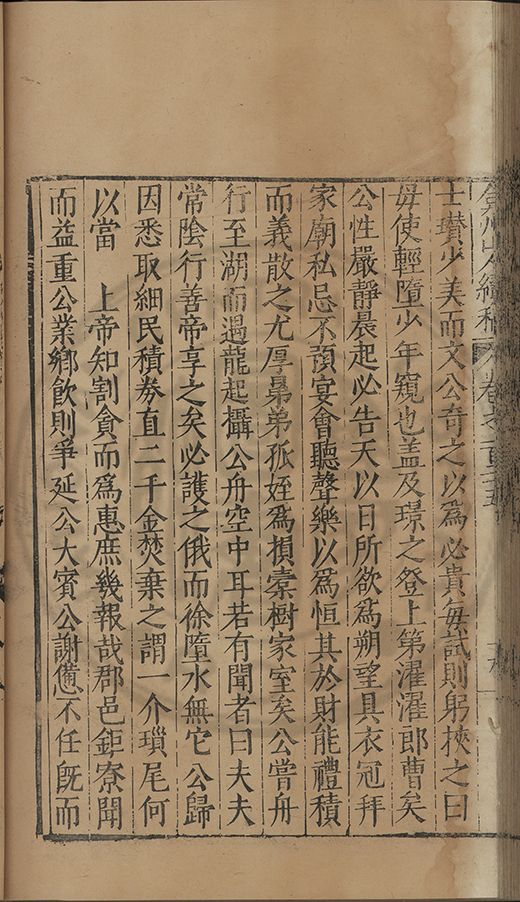 弇州山人續稿 卷之一百二十五
士瓚少美而文公奇之以爲必貴每試則躬挾之曰
毋使輕隋少年窺也盖及璟之登上第濯濯郎曹矣
公性嚴靜晨起必告天以日所欲爲朔望具衣冠拜
家廟私忌不預宴會聽聲樂以爲恒其於財能禮積
而義散之尤厚㬥弟孤姪爲損橐樹家室矣公嘗舟
行至湖而遇龍起攝公舟空中耳若有聞者曰夫夫
常陰行善帝享之矣必護之俄而徐墮水無它 公歸
因悉取細民積券直二千金焚棄之謂一介瑣尾何
以當 上帝知割貪而爲惠庶幾報哉郡邑鉅寮聞
而益重公業鄉飲則爭延公大賓公謝憊不任旣而